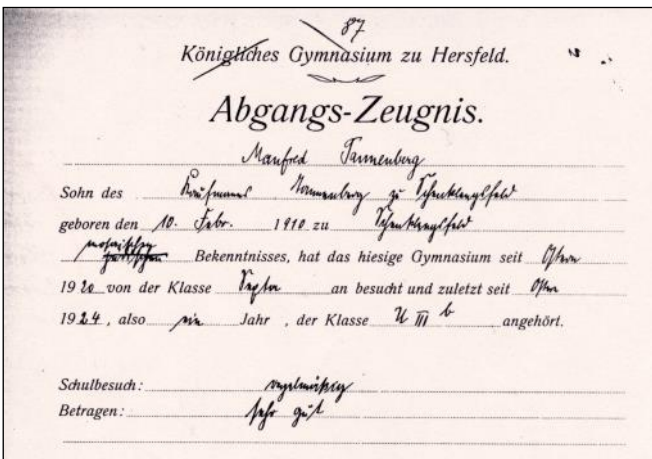 87
Königliches Gymnasium zu Hersfeld.
Abgangs-Zeugnis.
Manfred Tannenberg
Sohn des Kaufmanns Tannenberg zu Schenklengsfeld
geboren den 10. Febr. 1910 zu Schenklengsfeld
mosaischen jüdischen Bekenntnisses, hat das hiesige Gymnasium seit Ostern
1920 von der Klasse Sexta an besucht und zuletzt seit Ostern
1924, also ein Jahr, der Klasse U III b angehört.
Schulbesuch: regelmäßig
Betragen: sehr gut